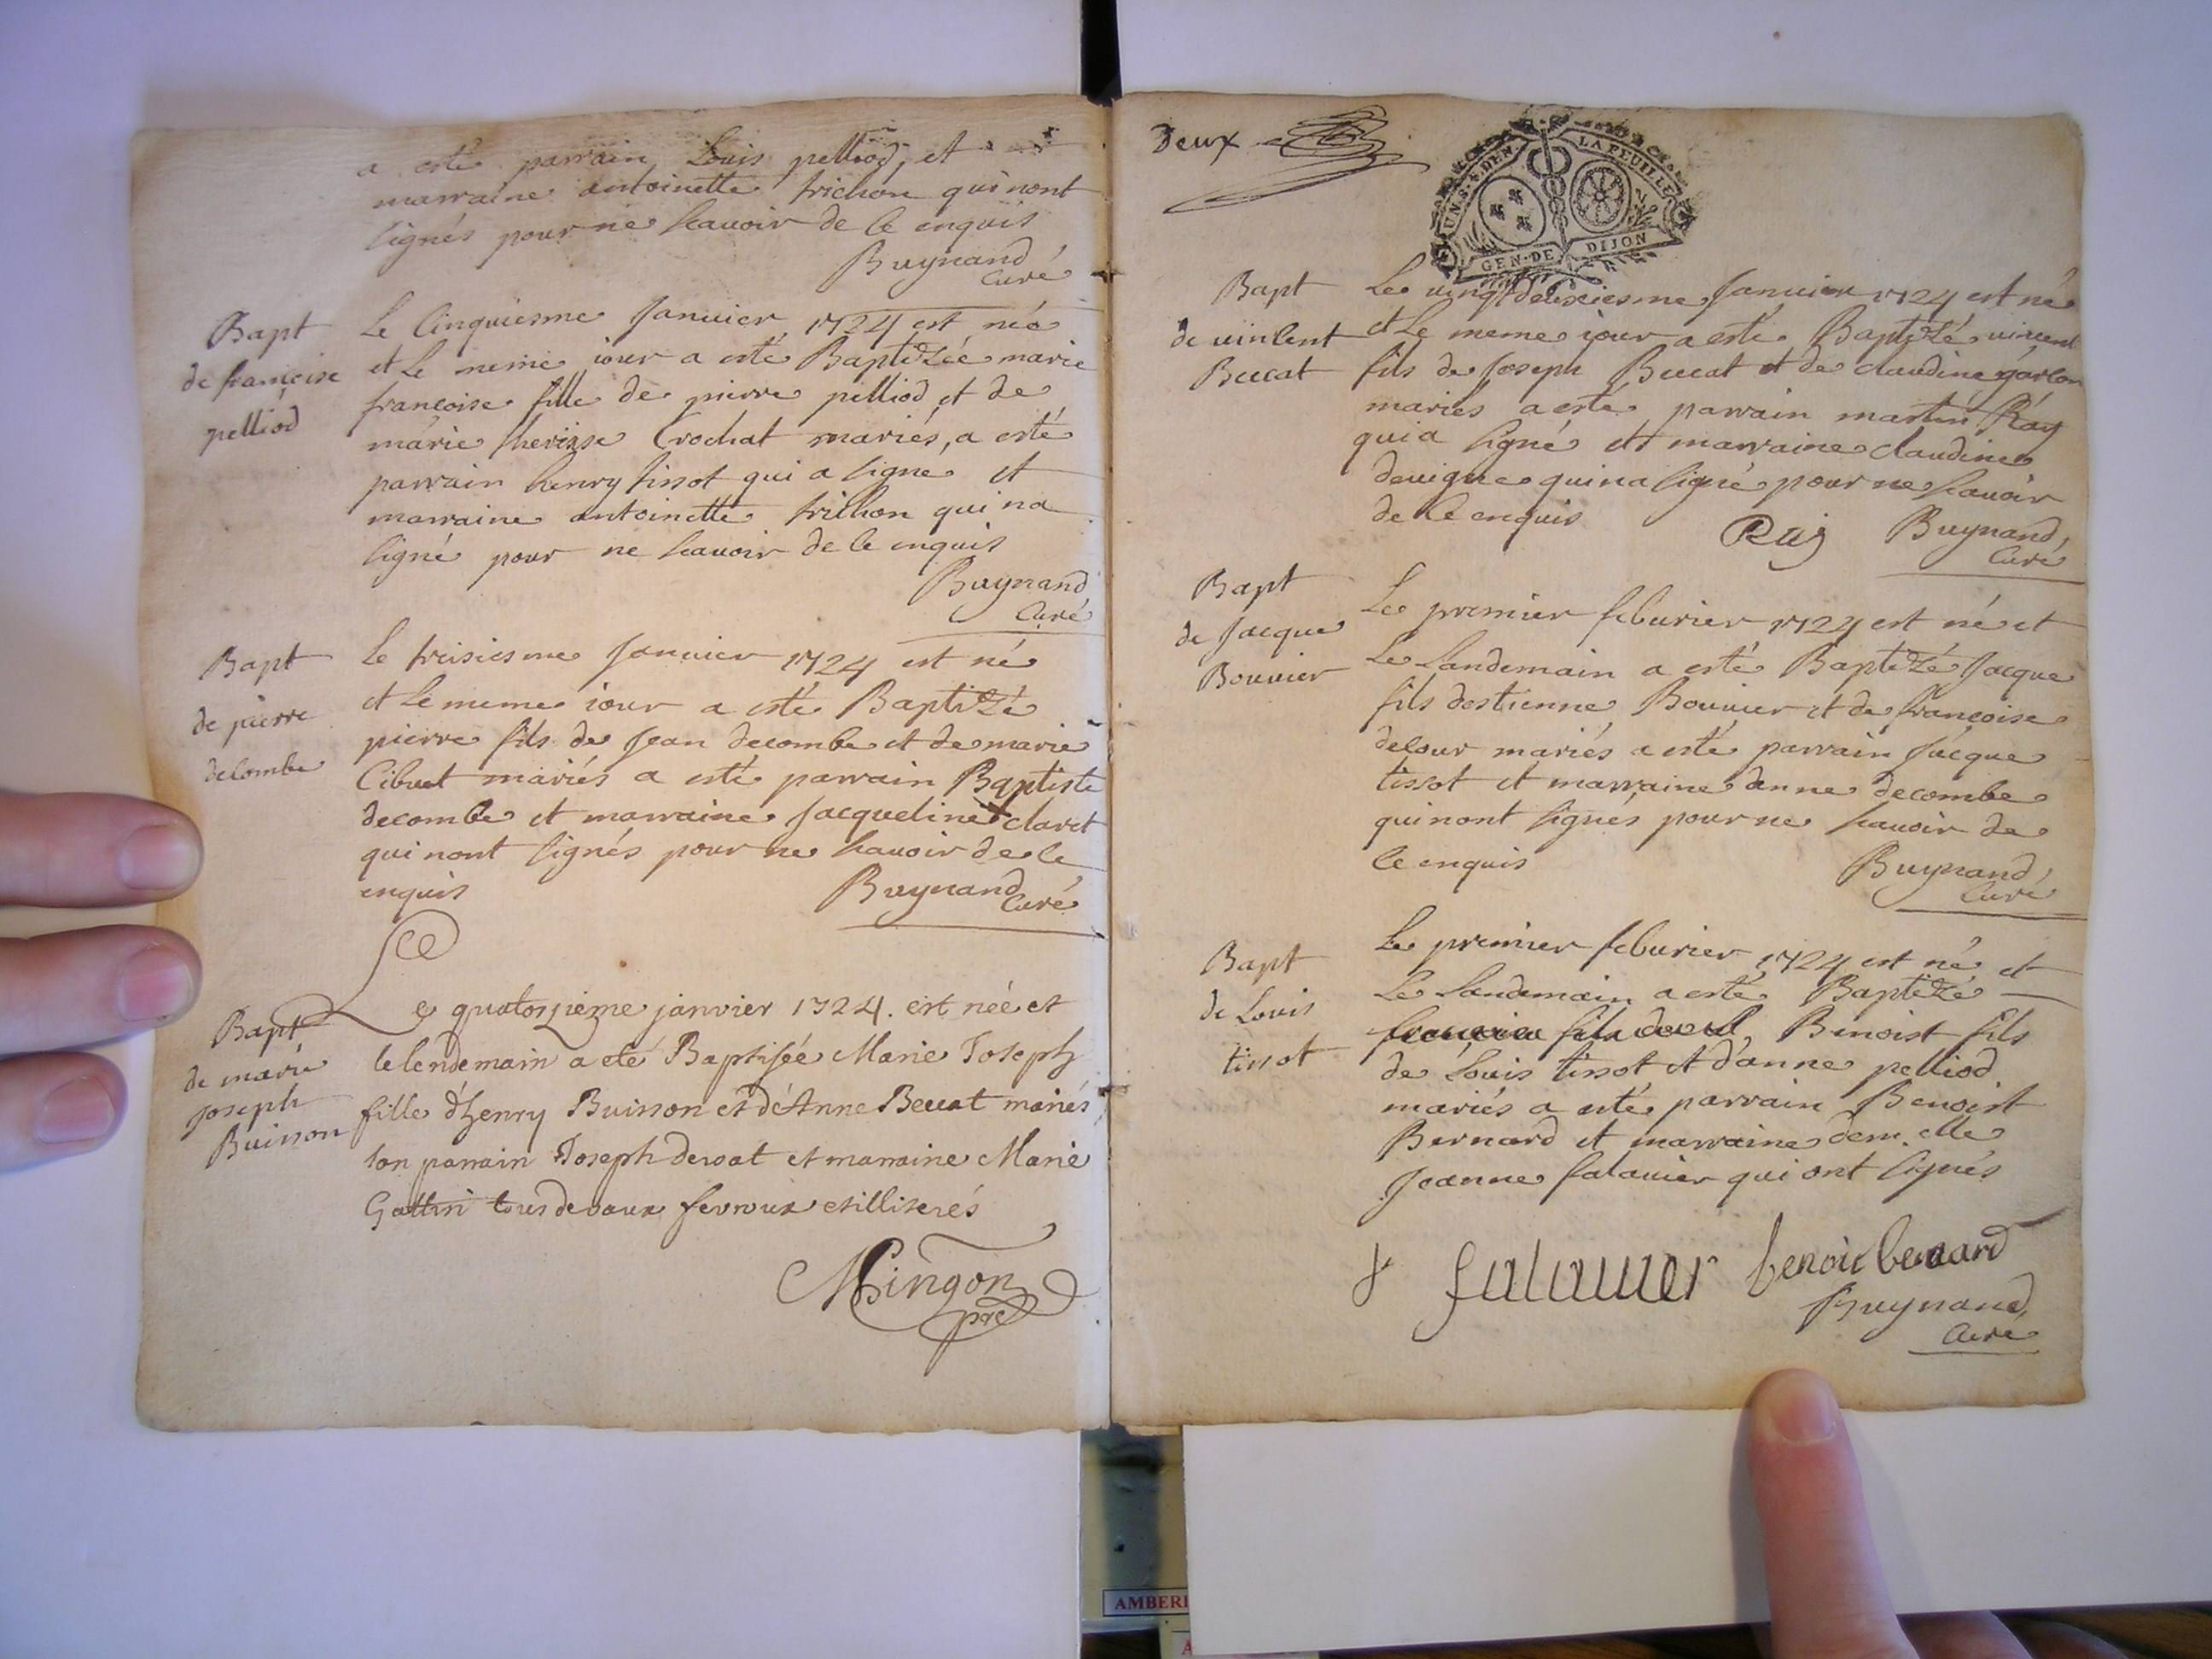 a esté parrain Louis pelliod, et
marraine antoinette trichon qui nont
signés pour ne scavoir de ce enquis
Buynand
Curé
Bapt
de francoise
pelliod
Le Cinquiesme Januier 1724 est née
et Le meme iour a esté Baptizée marie
francoise fille de pierre pelliod et de
marie therisse Crochat mariés, a esté
parrain henry tissot qui a signe et
marraine antoinette trichon qui na
signé pour ne scavoir de ce enquis
Buynand
Curé
Bapt
de pierre
decombe
Le treisiesme Januier 1724 est né
et Le meme iour a esté Baptizé
pierre fils de Jean decombe et de marie
Cibuet mariés a esté parrain Baptiste
decombe et marraine Jacqueline claret
qui nont signés pour ne scavoir de ce
enquis
Buynand
Curé
Bapt
de marie
joseph
Buisson
Le quatorzieme janvier 1724. est née et
le lendemain a eté Baptisée Marie Joseph
fille d'henry Buisson et d'Anne Beccat mariés
son parrain Joseph devoat et marraine Marie
Gottin tous de vaux fevroux et illiterés
Mingon
pre
Deux
UN S. 4 DEN. LA FEUILLE
GEN. DE DIJON
Bapt
de vincent
Beccat
Le vingtdeuxiesme Januier 1724 est né
et Le meme iour a esté Baptizé vincent
fils de Joseph Beccat et de claudine garlon
mariés a esté parrain martin Ray
qui a signé et marraine claudine
devigne qui na signé pour ne scavoir
de ce enquis
Ray
Buynand
Curé
Bapt
de Jacque
Bouvier
Le premier feburier 1724 est né et
Le Landemain a esté Baptizé Jacque
fils destienne Bouvier et de francoise
delour mariés a esté parrain Jacque
tissot et marraine anne decombe
qui nont signés pour ne scavoir de
ce enquis
Buynand
Curé
Bapt
de Louis
tissot
Le premier feburier 1724 est né et
Le Landemain a esté Baptizé
Benoist fils
de Louis tissot et d'anne pelliod
mariés a esté parrain Benoist
Bernard et marraine dem.elle
Jeanne falavier qui ont signés
J falavier benoit benard
Buynand
Curé
AMBERI